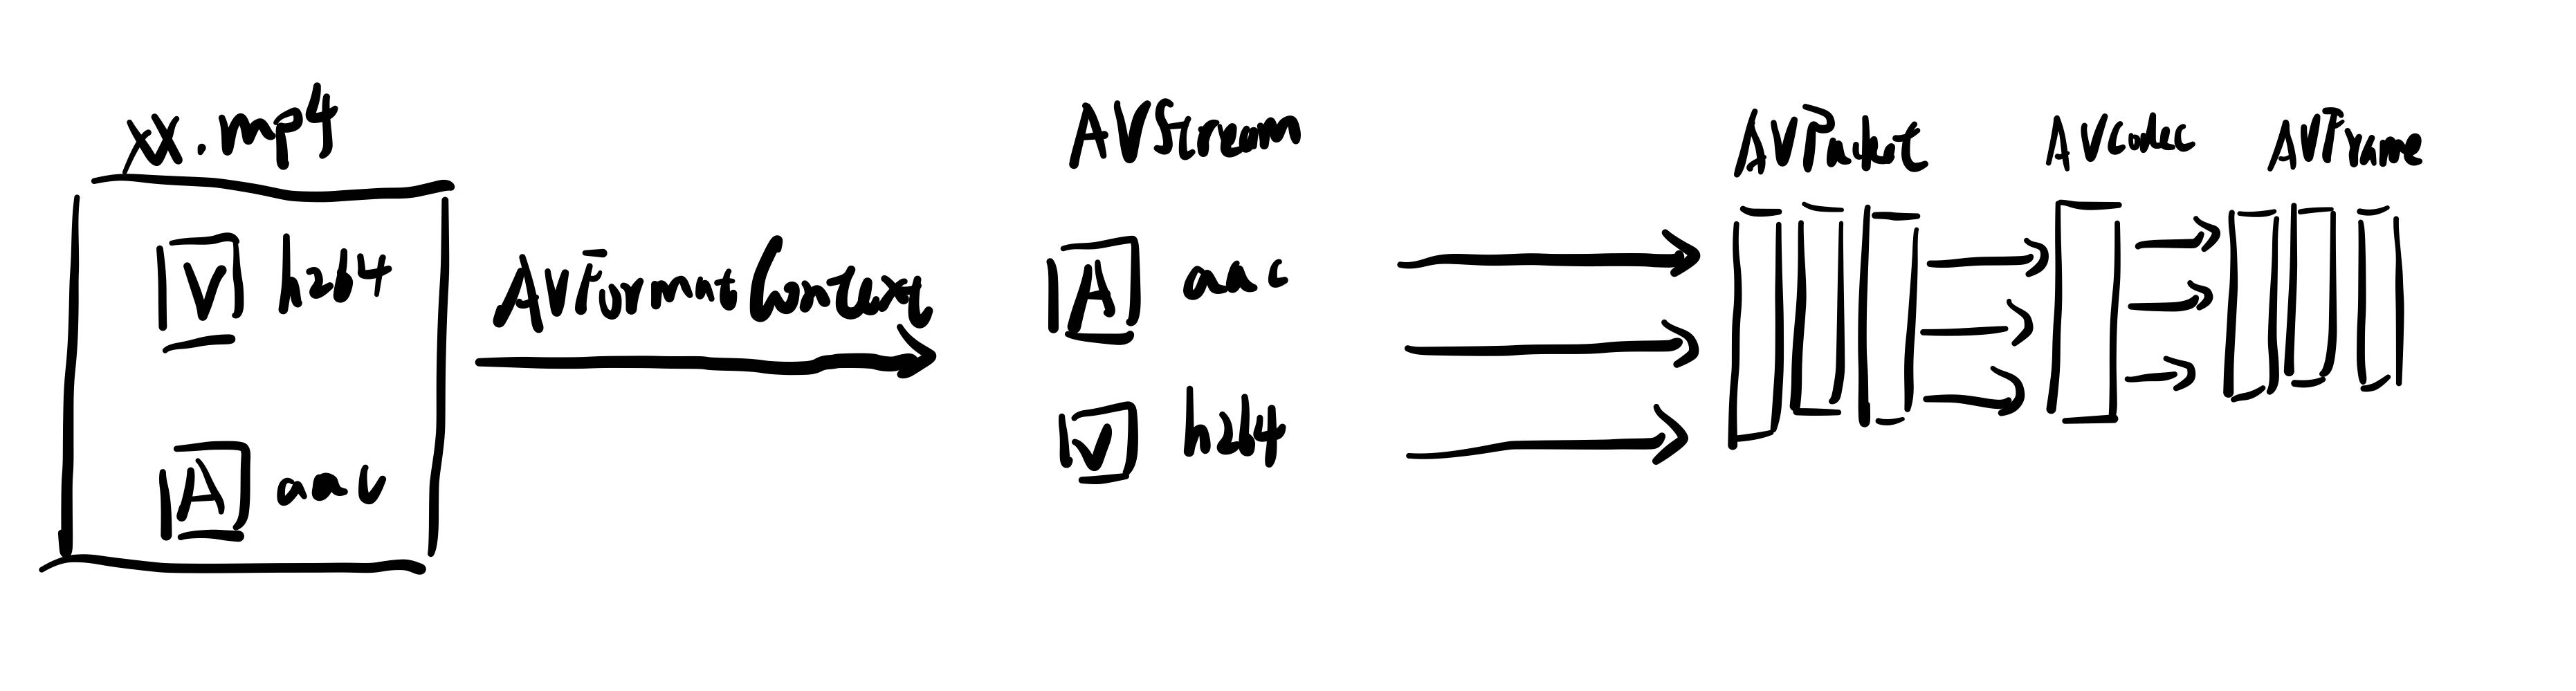 xx.mp4
V h264
A aac
AVFormatContext
AVStream
A aac
V h264
AVPacket
AVCodec
AVFrame